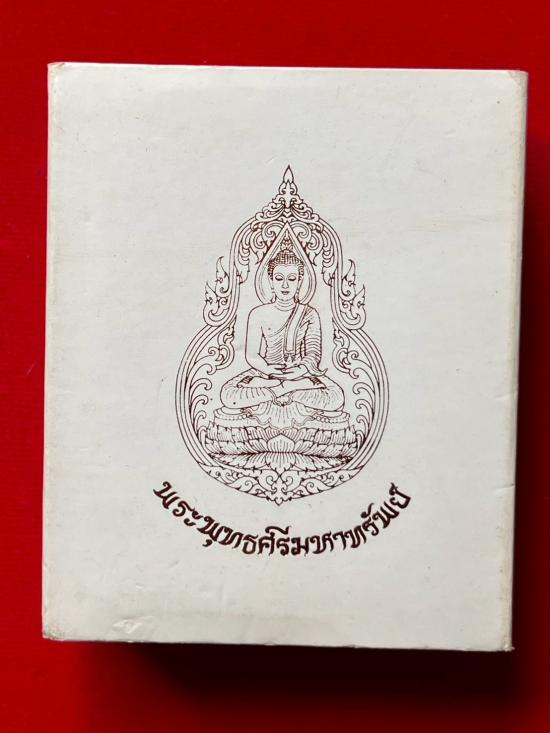 พระพุทธศรีมหาทรัพย์